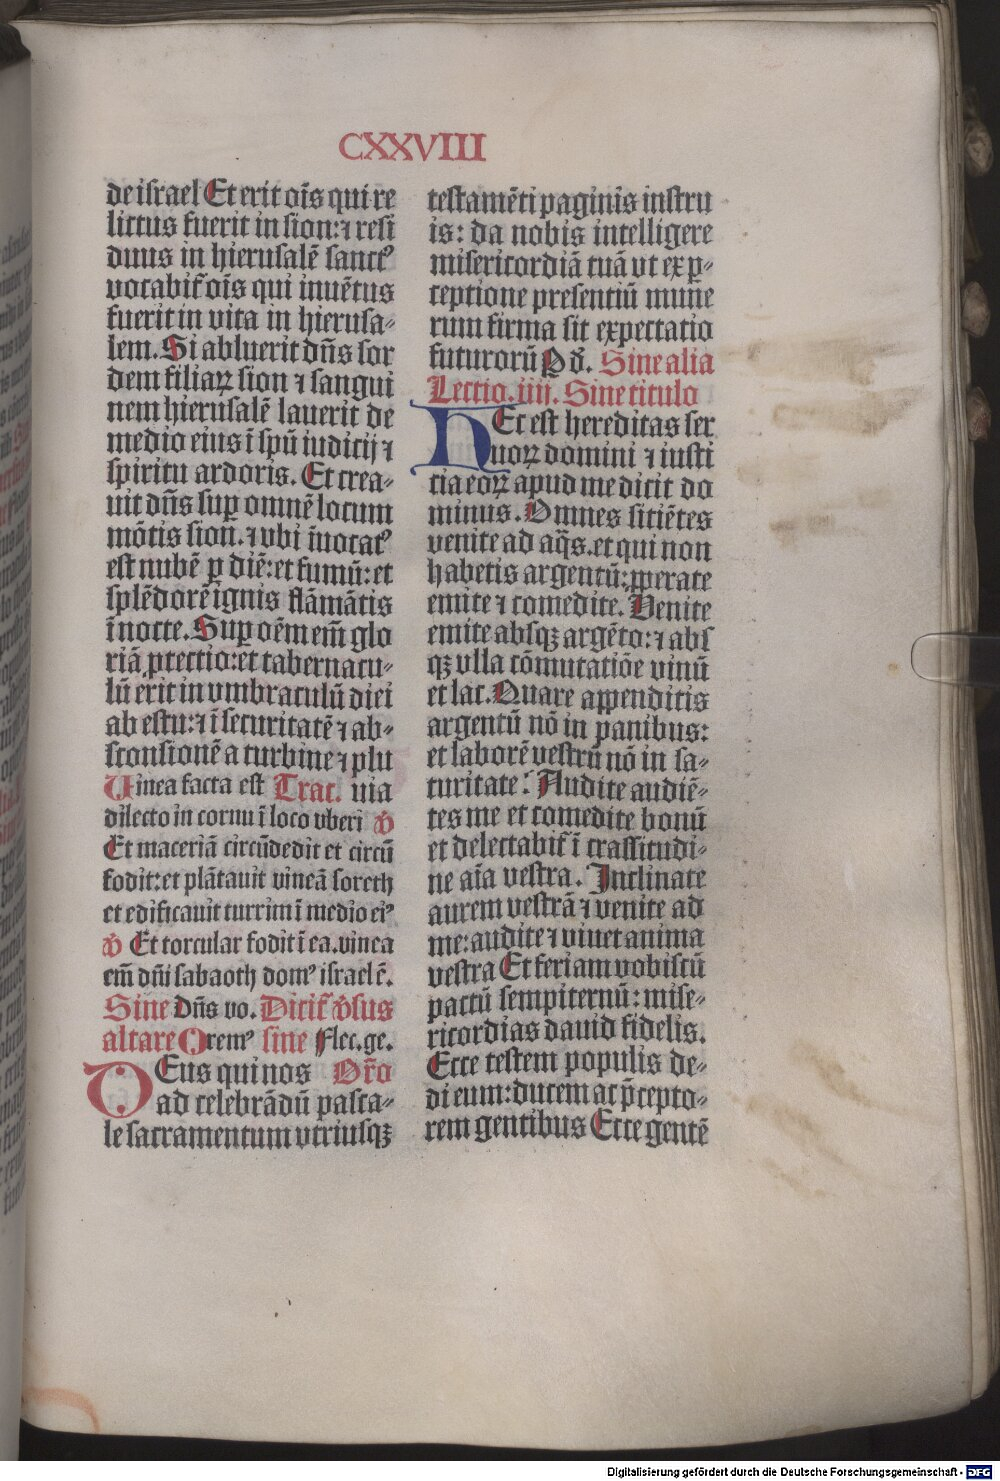 CXXVIII
de israel Et erit oīs qui re
lictus fuerit in sion: ⁊ resi
duus in hierusalē sanctꝰ
vocabit᷑ oīs qui inuētus
fuerit in vita in hierusa-
lem. Si abluerit dn̄s sor
dem filiaꝝ sion ⁊ sangui
nem hierusalē lauerit de
medio eius ī spū iudicij ⁊
spiritu ardoris. Et crea-
uit dn̄s suꝑ omnē locum
mōtis sion. ⁊ vbi īuocatꝰ
est nubē ꝑ diē: et fumū: et
splēdorē ignis flāmātis
ī nocte. Suꝑ oēm em̄ glo
riā ꝓtectio: et tabernacu-
lū erit in vmbraculū diei
ab estu: ⁊ ī securitatē ⁊ ab-
sconsionē a turbine ⁊ plu
Vinea facta est Trac. uia
dilecto in cornu ī loco vberi ℣
Et maceriā circūdedit et circū
fodit: et plātauit vineā soreth
et edificauit turrim ī medio eiꝰ
℣ Et torcular fodit ī ea. vinea
em̄ dn̄i sabaoth domꝰ israel ē.
Sine Dn̄s vo. Dicit᷑ v̄sus
altare Oremꝰ sine Flec. ge.
DEus qui nos Or̄o
ad celebrādū pasca-
le sacramentum vtriusqꝫ
testamēti paginis instru
is: da nobis intelligere
misericordiā tuā vt ex ꝑ-
ceptione presentiū mune
rum firma sit expectatio
futurorū P d̄. Sine alia
Lectio. iiij. Sine titulo
HEc est hereditas ser
uoꝝ domini ⁊ iusti
cia eoꝝ apud me dicit do
minus. Omnes sitiētes
venite ad aq̄s. et qui non
habetis argentū: ꝓperate
emite ⁊ comedite. Venite
emite absqꝫ argēto: ⁊ abs
qꝫ vlla cōmutatiōe vinū
et lac. Quare appenditis
argentū nō in panibus:
et laborē vestrū nō in sa-
turitate? Audite audiē-
tes me et comedite bonū
et delectabit᷑ ī crassitudi-
ne aīa vestra. Inclinate
aurem vestrā ⁊ venite ad
me: audite ⁊ viuet anima
vestra Et feriam vobiscū
pactū sempiternū: mise-
ricordias dauid fidelis.
Ecce testem populis de-
di eum: ducem ac p̄cepto-
rem gentibus Ecce gentē
Digitalisierung gefördert durch die Deutsche Forschungsgemeinschaft - DFG